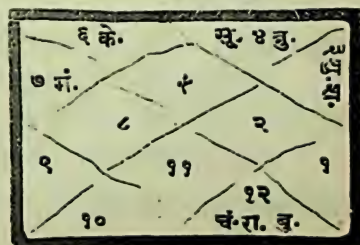 ६ के.
सू. ४ बु.
७ मं.
५
३ शु. श.
८
२
९
११
१
१२
१०
चं. रा. बृ.